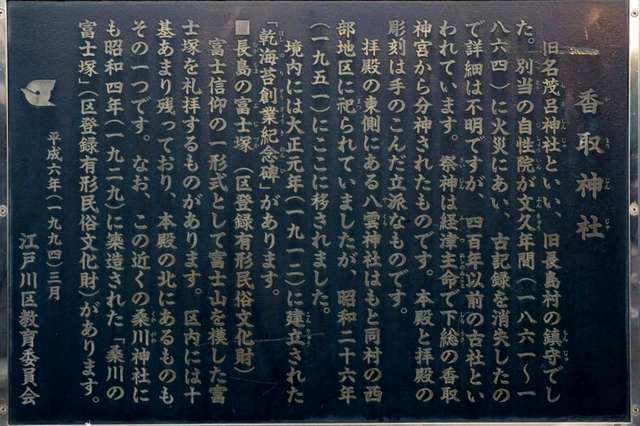 香取神社
旧名茂呂神社といい、旧長島村の鎮守でし
た。別当の自性院が文久年間(一八六一~一
八六四)に火災にあい、古記録を消失したの
で詳細は不明ですが、四百年以前の古社とい
われています。祭神は経津主命で下総の香取
神宮から分神されたものです。本殿と拝殿の
彫刻は手のこんだ立派なものです。
拝殿の東側にある八雲神社はもと同村の西
部地区に祀られていましたが、昭和二十六年
(一九五一)にここに移されました。
境内には大正元年(一九一二)に建立された
「乾海苔創業紀念碑」があります。
■長島の富士塚(区登録有形民俗文化財)
富士信仰の一形式として富士山を模した富
士塚を礼拝するものがあります。区内には十
基あまり残っており、本殿の北にあるものも
その一つです。なお、この近くの桑川神社に
も昭和四年(一九二九)に築造された「桑川の
富士塚」(区登録有形民俗文化財)があります。
平成六年(一九九四)三月
江戸川区教育委員会